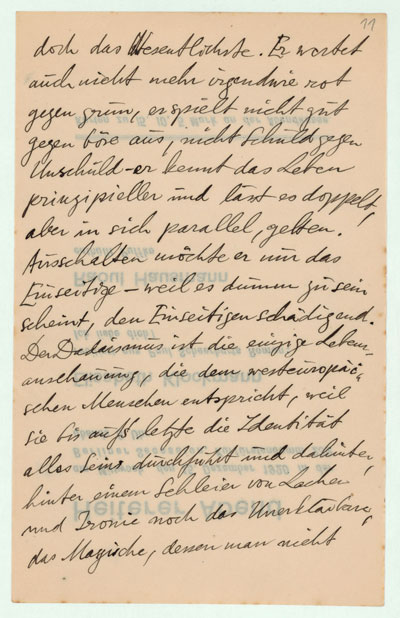 11
doch das Wesentlichste. Er wertet
auch nicht mehr irgendwie rot
gegen grün, er spielt nicht gut
gegen böse aus, nicht Schuld gegen
Unschuld – er kennt das Leben
prinzipieller und lässt es doppelt,
aber in sich parallel, gelten.
Ausschalten möchte er nur das
Einseitige – weil es dumm zu sein
scheint, den Einseitigen schädigend.
Der Dadaismus ist die einzige Lebens-
anschauung, die dem westeuropäi-
schen Menschen entspricht, weil
sie bis aufs letzte die Identität
alles Seins durchführt und dahinter,
hinter einem Schleier von Lachen
und Ironie noch das Unerklärbare,
das Magische, dessen man nicht
Raoul Hausmann
Heiterer Abend